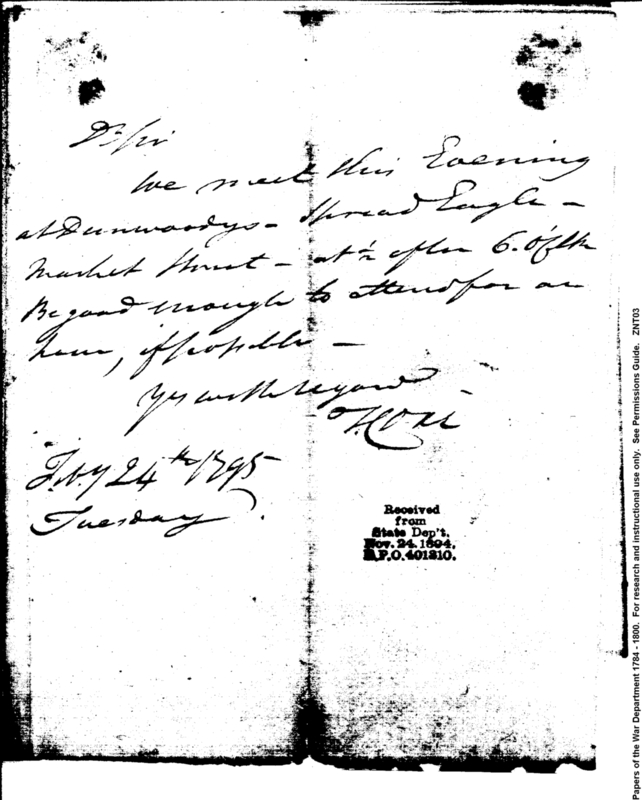 Dr Sir
We meet this Evening
at Dunwoodys - Spread Eagle -
Market Street - at ½ after 6. O'Clk
Be good enough to attend for an
hour, if possible -
Yrs with regard
Feby 24th 1795
Tuesday.
Received
from
State Dep't.
Nov. 24. 1894.
R.P.O. 401210.
Papers of the War Department 1784 - 1800. For research and instructional use only. See Permissions Guide. ZNT03